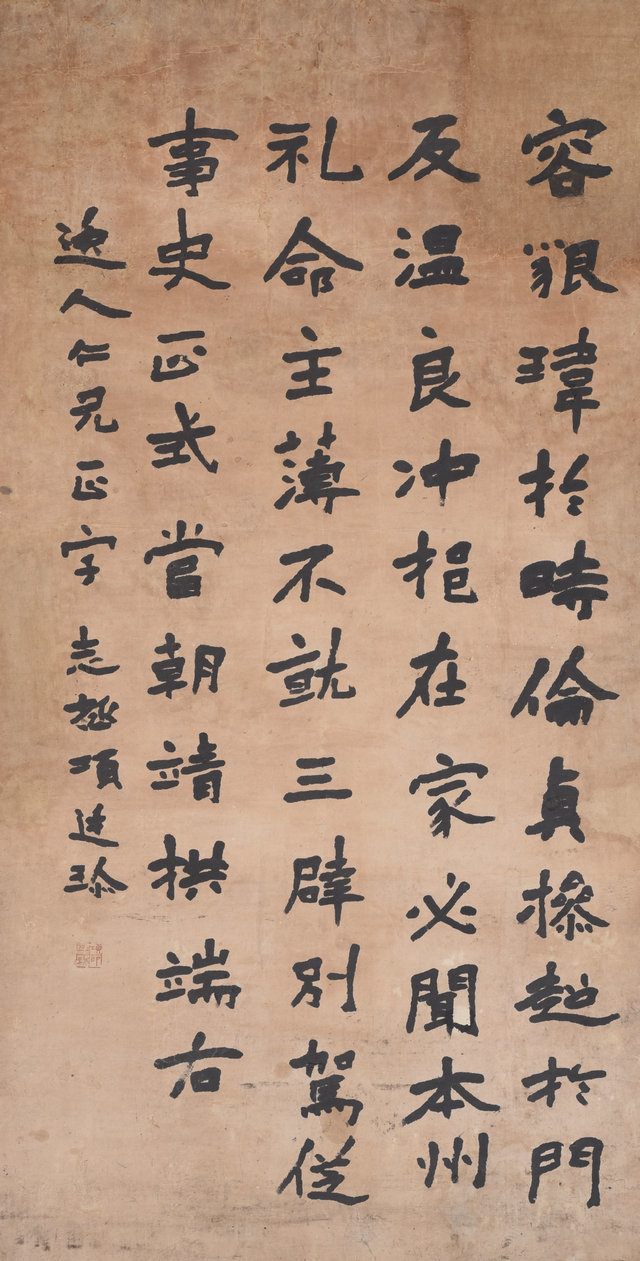 容貌瑋於時倫貞操越於門
反溫良冲挹在家必聞本州
礼命主薄不就三辟別駕從
事史正式當朝靖拱端右
逸人仁兄正字 志 項廷珍